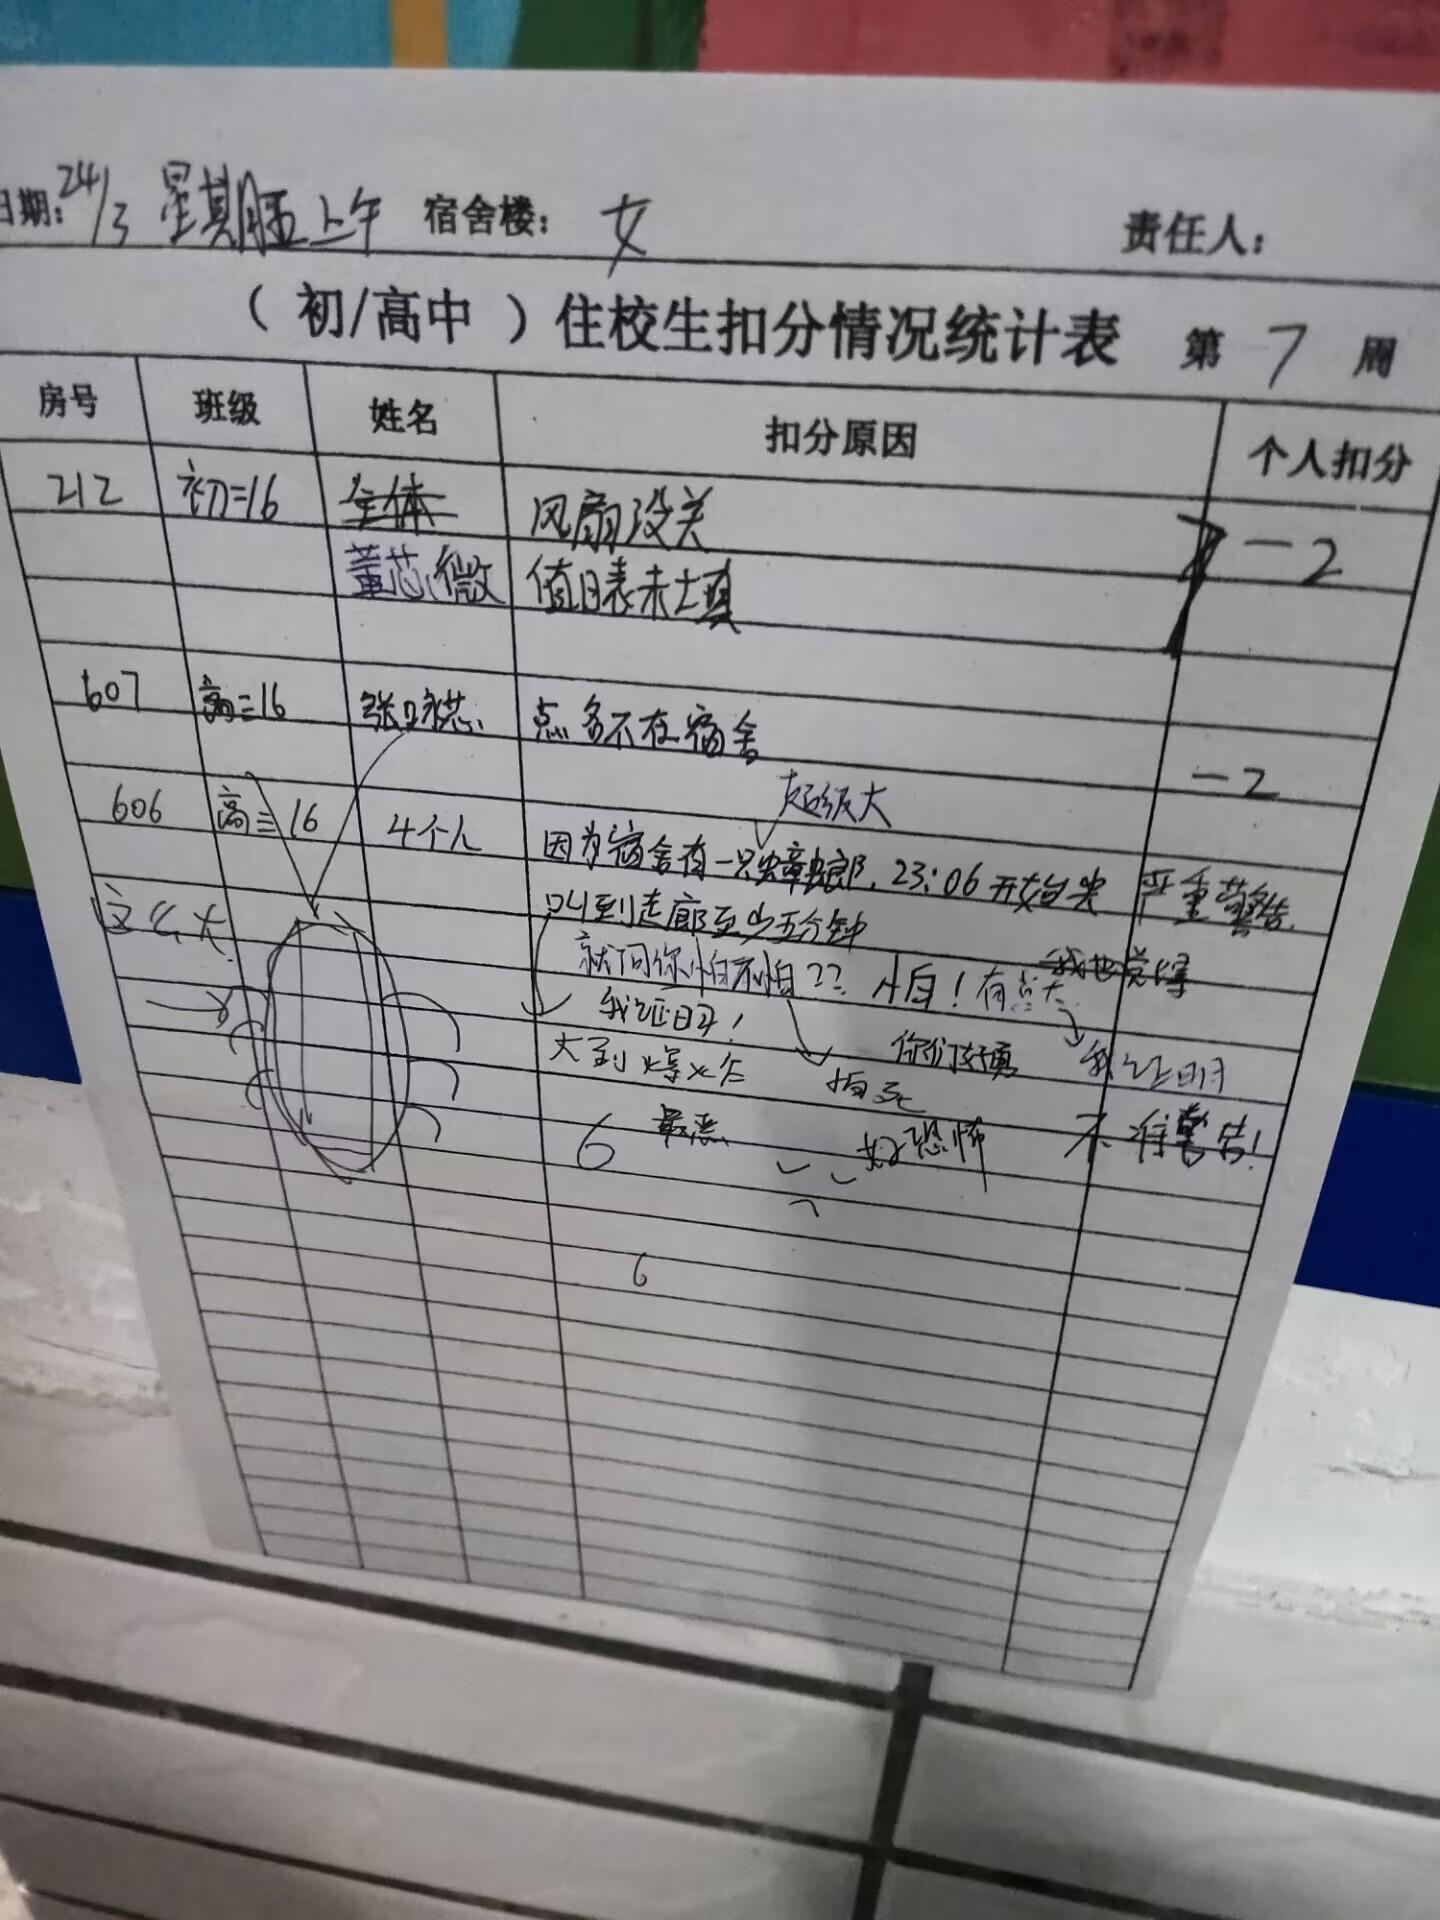 日期: 24/3 星期五上午 宿舍楼: 女 责任人:
（ 初/高中 ）住校生扣分情况统计表 第 7 周
房号 班级 姓名 扣分原因 个人扣分
212 初二16 全体 风扇没关 -2
董芯微 值日表未填
607 高三16 点名不在宿舍 -2
超级大
606 高三16 4个人 因为宿舍有一只蟑螂，23:06开始尖 严重警告.
这么大 叫到走廊至少五分钟
就问你怕不怕?? 怕! 有点大 我也觉得
我证明! 你们好勇 我证明
大到爆炸 怕死
6 最恶 好恐怖 不准警告!
6